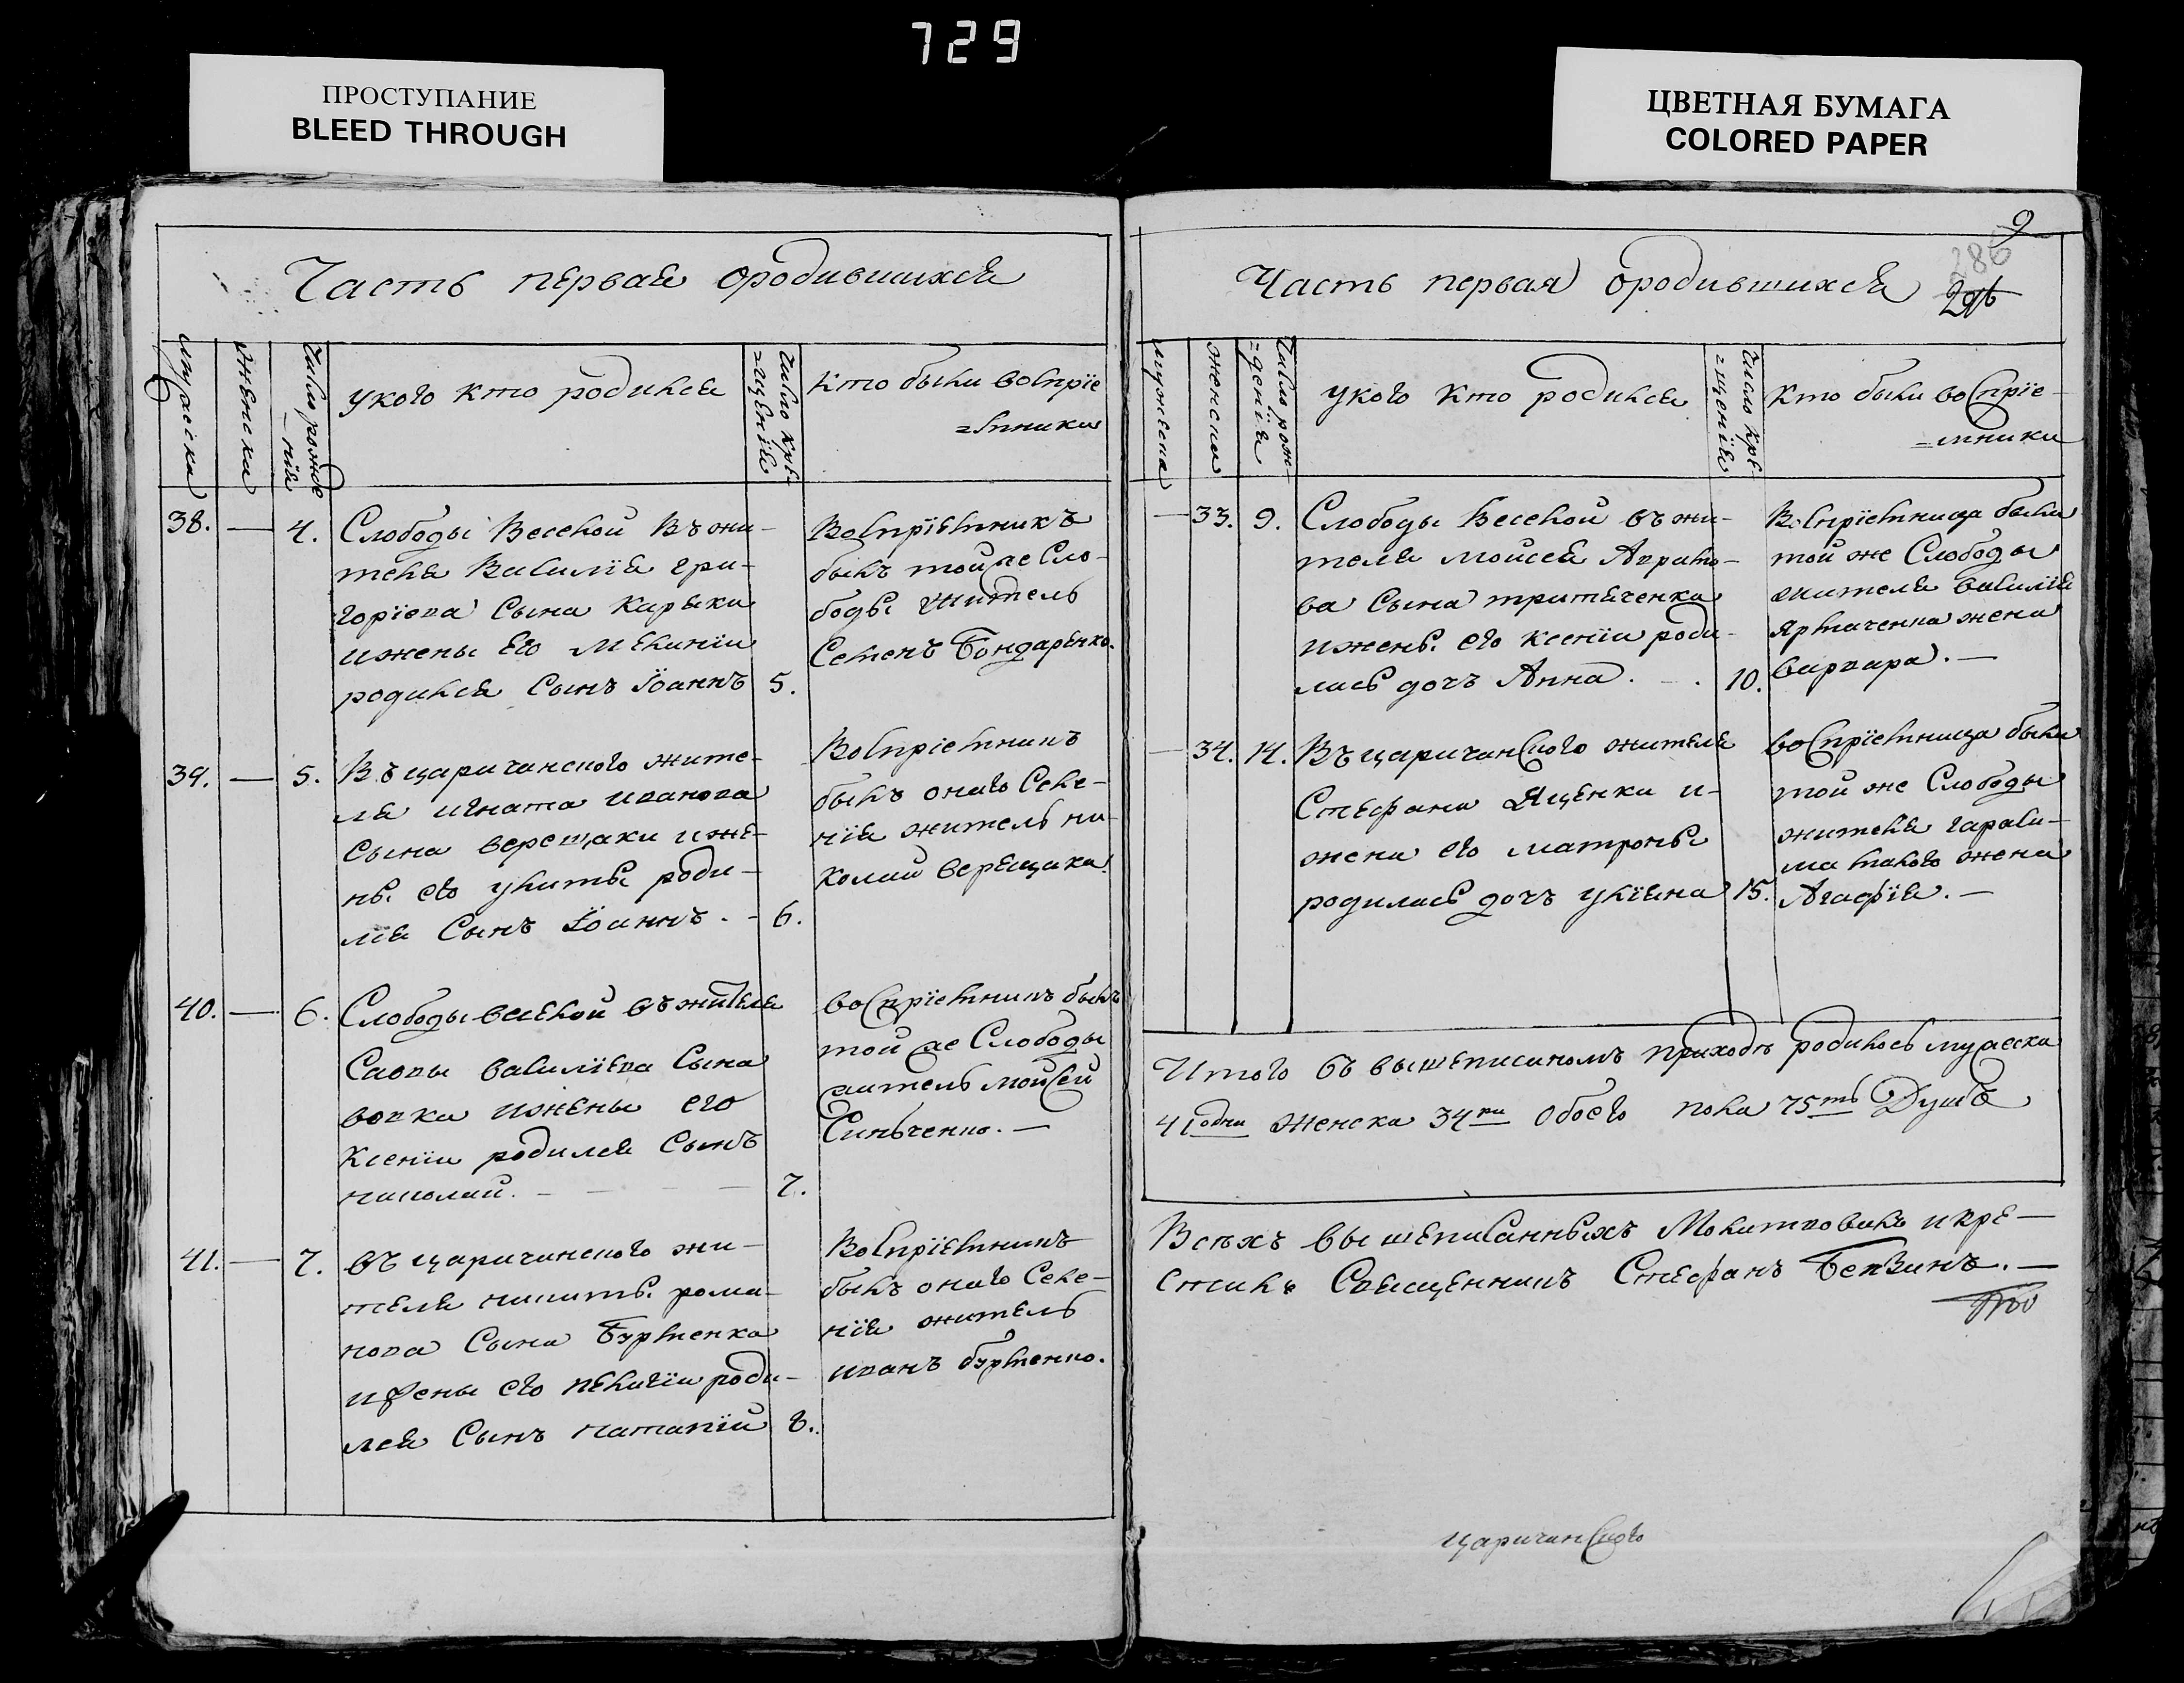 729
ПРОСТУПАНИЕ
BLEED THROUGH
ЦВЕТНАЯ БУМАГА
COLORED PAPER
Часть первая ородившихся
мужеска
женска
Число рожде
=нія
укого кто родился
Число кре-
=щенія
Кто были воспріе
=мники
38. — 4. Слободы Веселой Въ жи-
теля Василія гри-
горіева Сына Карыки
ижены Его Меланіи
родился Сынъ Іоаннъ 5.
Воспріемникъ
былъ той же Сло-
боды житель
Семенъ Бондаренко.
39. — 5. Въ царичанского жите-
ля игната иванова
Сына верещаки иже-
ны его улиты роди-
лся Сынъ Іоаннъ. - 6.
Воспріемникъ
былъ онаго Селе-
нія житель ни-
колай верещака
40. — 6. Слободы веселой въ жителя
Саввы василіева Сына
вовка ижены его
Ксеніи родился Сынъ
николай. — 7.
воспріемникъ былъ
той же Слободы
житель мойсей
Синьченко. —
41. — 7. въ царичанского жи-
теля никиты рома-
нова Сына Бурменка
ижены его пелагіи роди-
лся Сынъ 8.
Воспріемникъ
былъ онаго Селе-
нія житель
иванъ бурменко.
9
286
Часть первая ородившихся
мужеска
женска
Число рож-
=денія
укого кто родился
Число кре-
=щенія
Кто были воспріе-
=мники
— 33. 9. Слободы Веселой въ жи-
теля мойсея Аврамо-
ва Сына тритяченка
ижены его ксеніи роди-
лась дочъ Анна. - . 10.
Воспріемница была
той же Слободы
жителя василія
Ярмаченка жена
варвара. —
— 34. 14. Въ царичанского жителя
Стефана Яценка и-
жены его матроны
родилась дочъ уліяна 15.
воспріемница была
той же Слободы
жителя гараси-
ма жена
Агафія. —
Итого въ вышеписаномъ приходѣ родилось мужеска
41 одна женска 34ри обоего пола 75ть Душъ
Всѣхъ вышеписанныхъ Молитвовалъ икре-
стилъ Священникъ Стефанъ —
царичанского